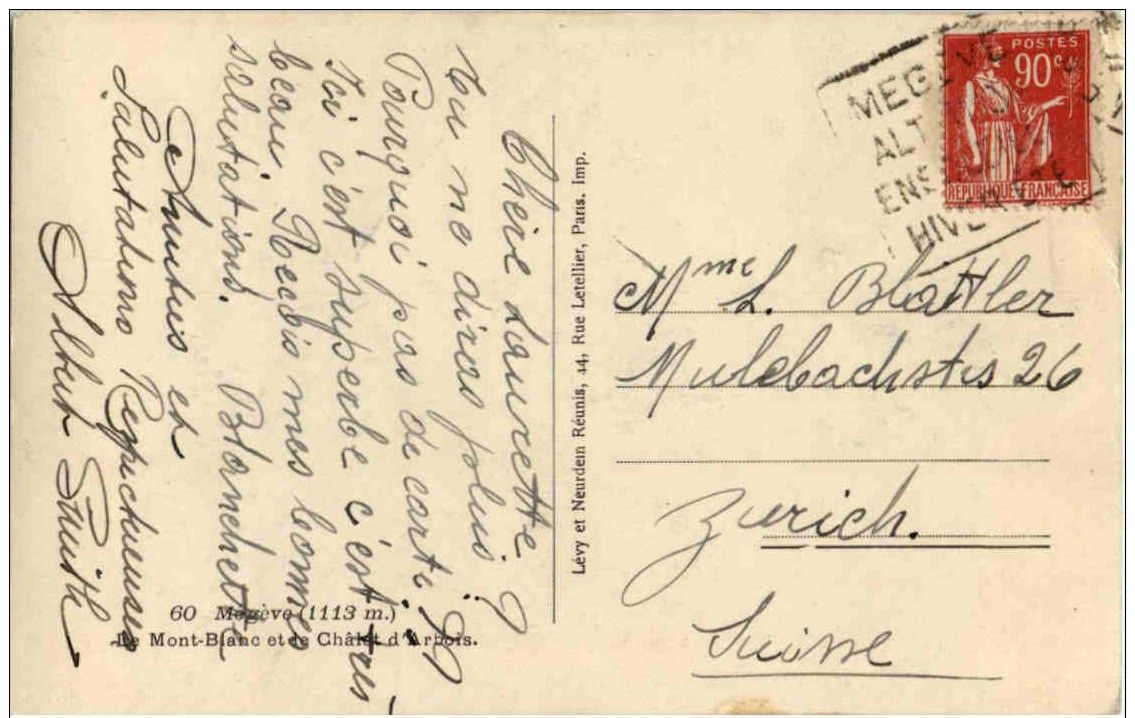 Chère Laurette
tu ne diras plus
Pourquoi pas de carte ??
Ici c'est superbe c'est très
beau. Reçois mes bonnes
salutations. Blanchette
Amitiés et
Salutations Respectueuses
Albert Smith
60 Megève (1113 m.)
Le Mont-Blanc et le Châlet d'Arbois.
Lévy et Neurdein Réunis, 44, Rue Letellier, Paris. Imp.
MEGÈVE
ALT
ENS
HIVE
POSTES
90c
REPUBLIQUE FRANÇAISE
Mme L. Blattler
Mulebachstrs 26
Zurich.
Suisse